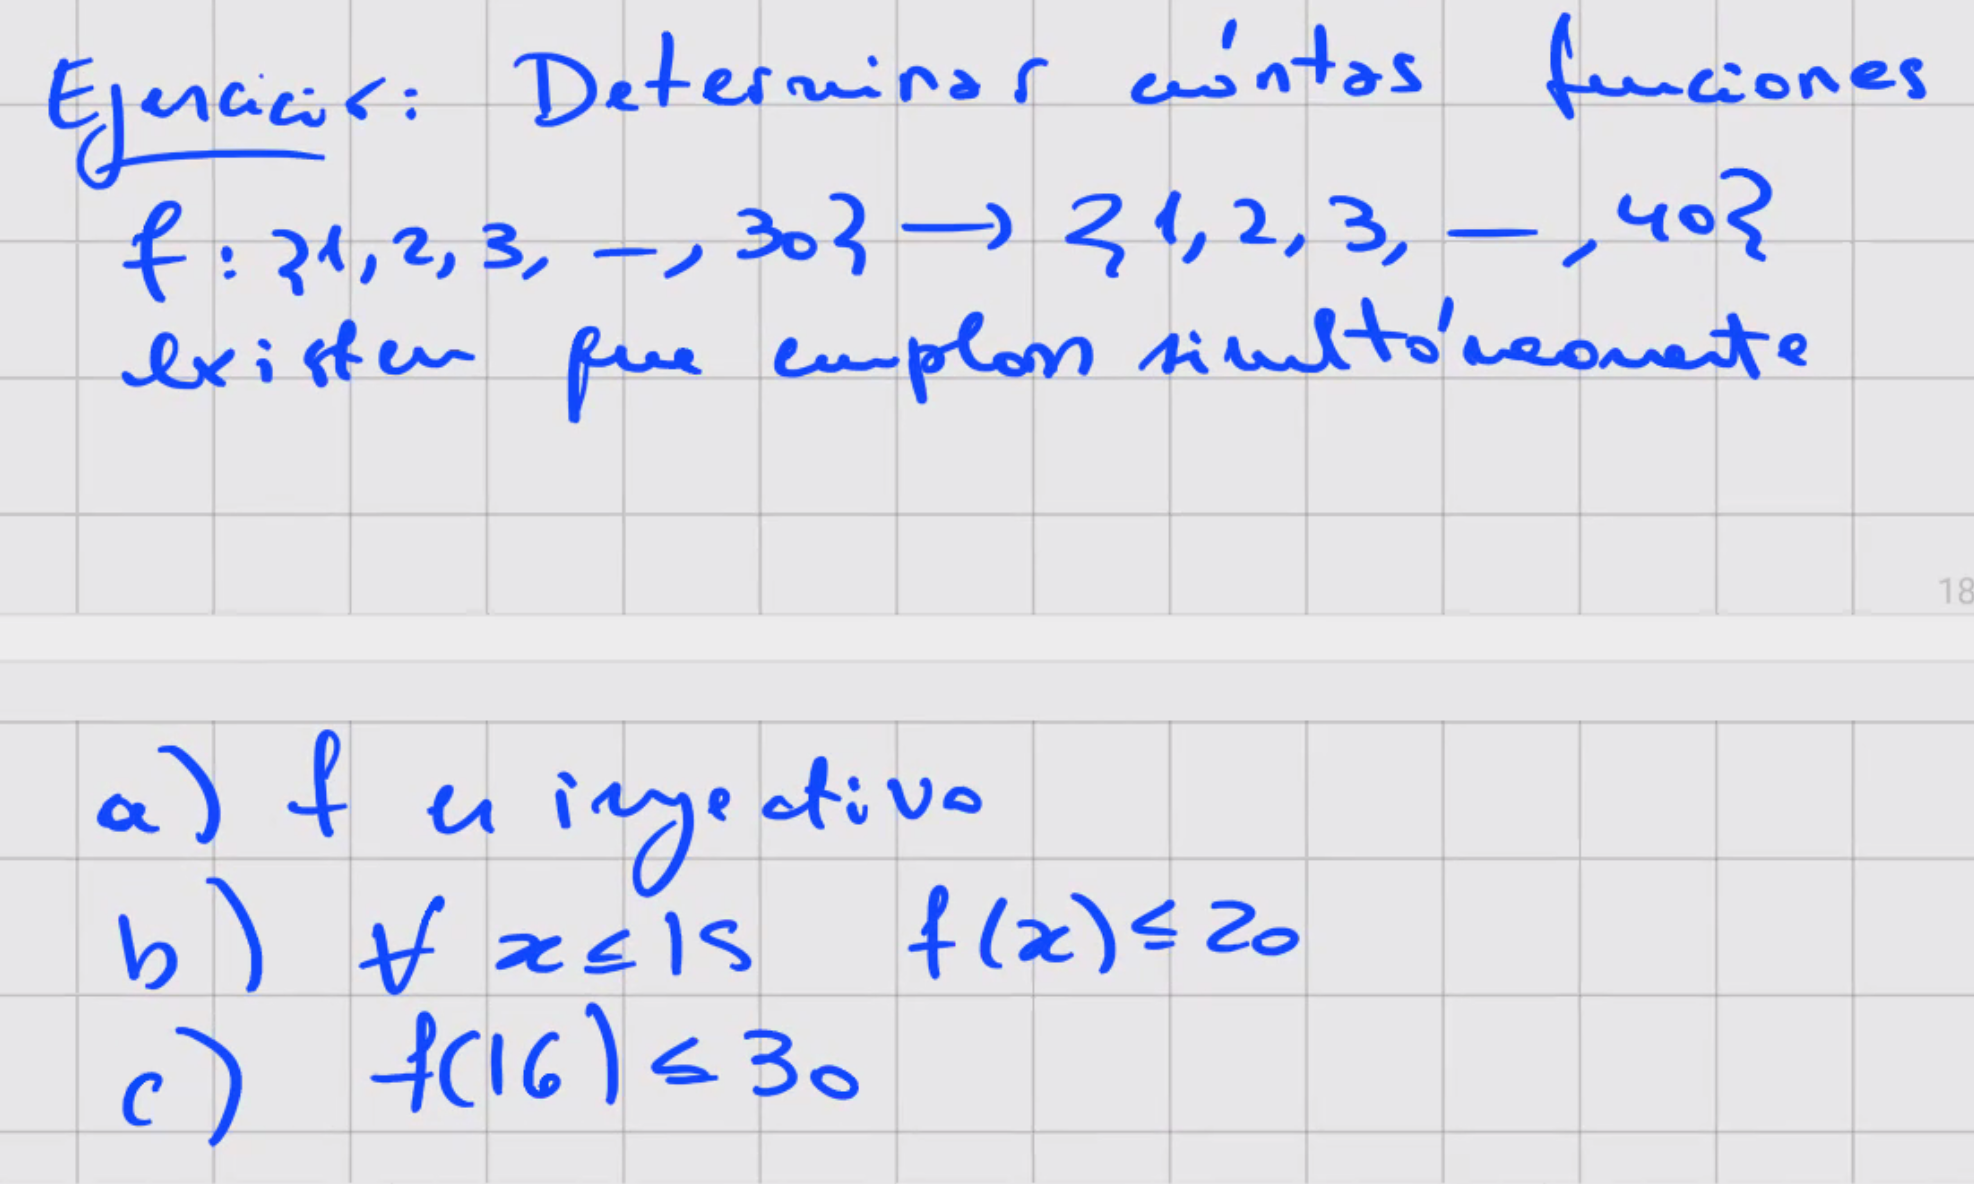 Ejercicio: Determinar cuántas funciones
f: {1, 2, 3, —, 30} → {1, 2, 3, —, 40}
existen que cumplan simultáneamente
18
a) f es inyectiva
b) ∀ x ≤ 15 f(x) ≤ 20
c) f(16) ≤ 30